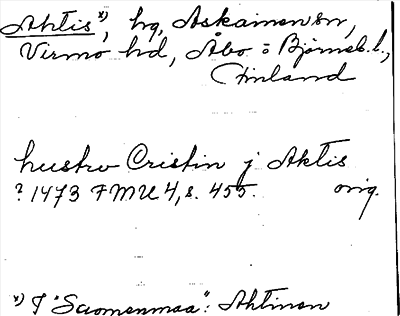 Ahtis x), hg, Askainen sn,
Virmo hd, Åbo o Björneb. l.,
Finland
hustro Cristin j Aktis
? 1473 FMU 4, s. 455. orig.
x) I "Suomenmaa": Ahtinen